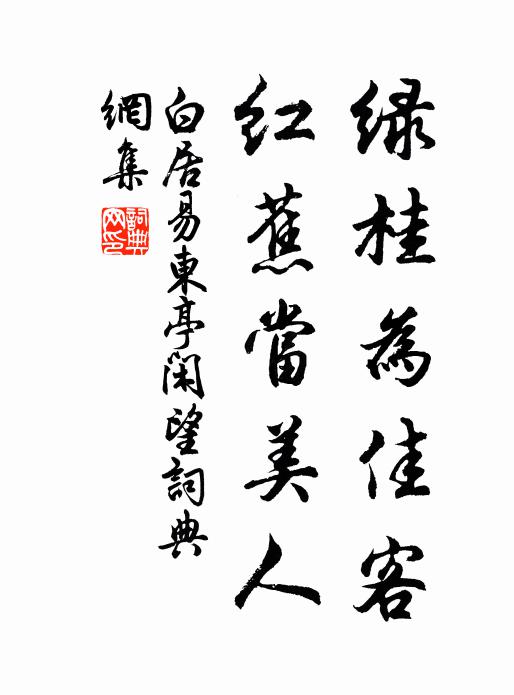 綠桂為佳客
紅蕉當美人
白居易東亭閑望詞典
網集
詞典
网印